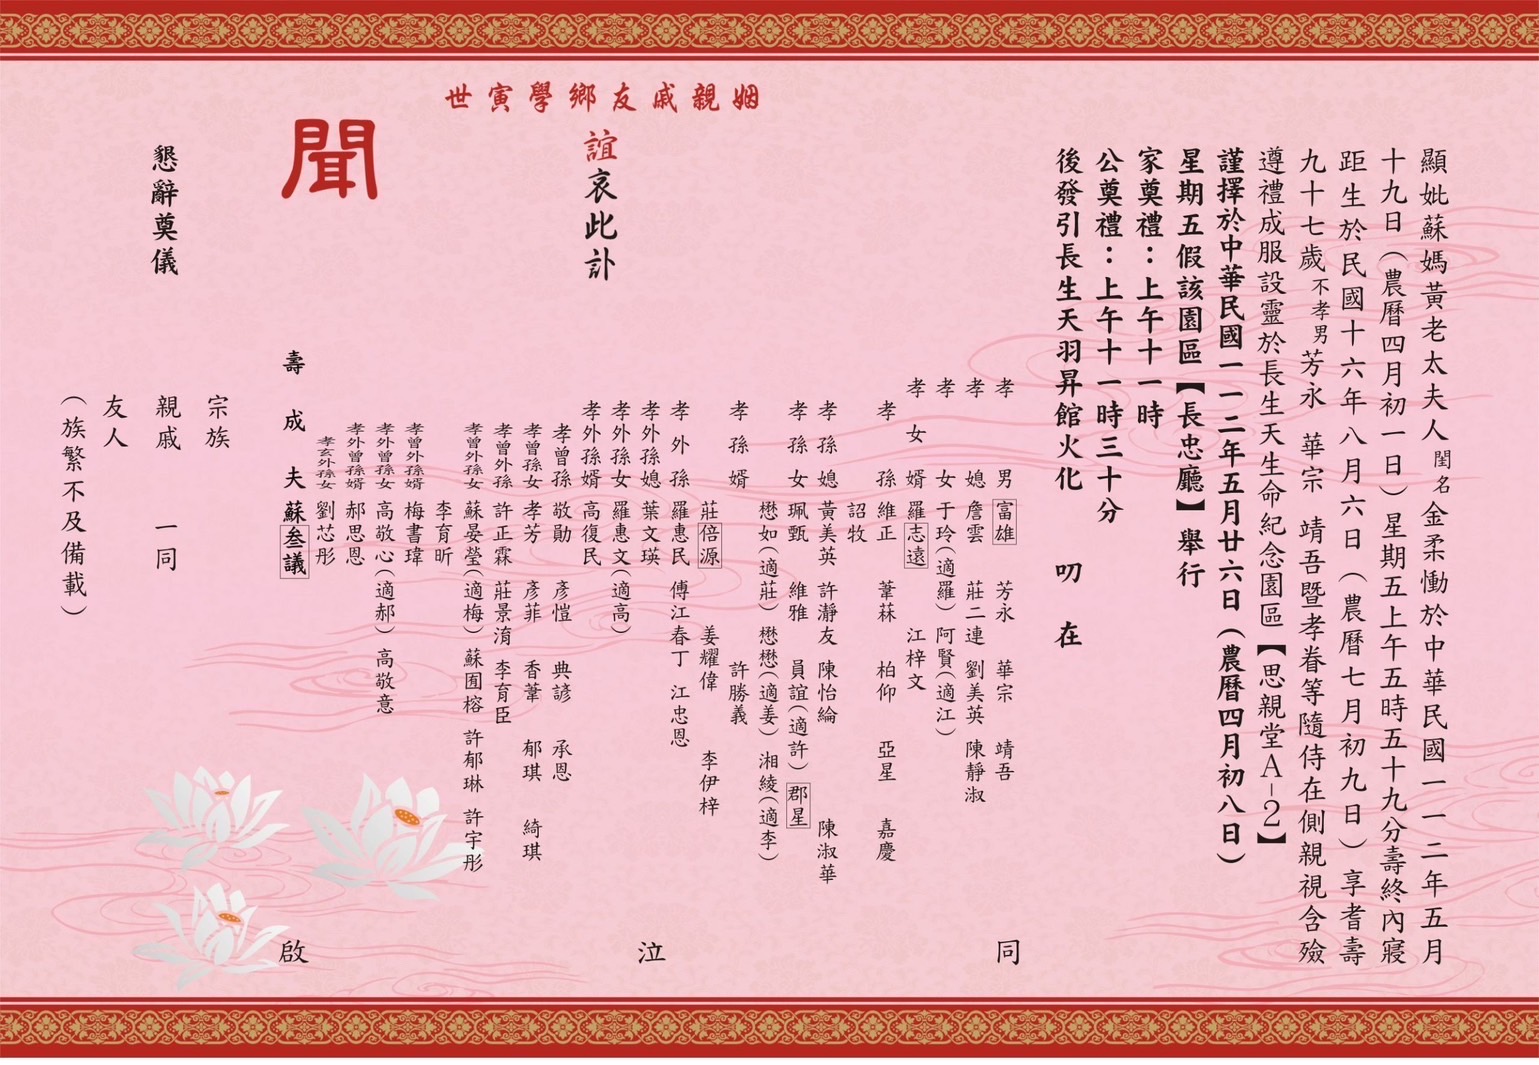 顯妣蘇媽黃老太夫人閨名金柔慟於中華民國一一二年五月
十九日(農曆四月初一日)星期五上午五時五十九分壽終內寢
距生於民國十六年八月六日(農曆七月初九日)享耆壽
九十七歲不孝男芳永 華宗 靖吾暨孝眷等隨侍在側親視含殮
遵禮成服設靈於長生天生命紀念園區【思親堂A-2】
謹擇於中華民國一一二年五月廿六日(農曆四月初八日)
星期五假該園區【長忠廳】舉行
家奠禮：上午十一時
公奠禮：上午十一時三十分
後發引長生天羽昇館火化 叨 在
姻親戚友鄉學寅世
誼哀此訃
聞
孝男 富雄 芳永 華宗 靖吾
孝媳 詹雲 莊二連 劉美英 陳靜淑
孝女 于玲(適羅) 阿賢(適江)
孝女婿 羅志遠 江梓文
孝孫 維正 葦菻 柏仰 亞星 嘉慶
詔牧
孝孫媳 黃美英 許瀞友 陳怡綸 陳淑華
孝孫女 珮甄 維雅 員誼(適許) 郡星
懋如(適莊) 懋懋(適姜) 湘綾(適李)
孝孫婿 許勝義
莊倍源 姜耀偉 李伊梓
孝外孫 羅惠民 傅江春丁 江忠恩
孝外孫媳 葉文瑛
孝外孫女 羅惠文(適高)
孝外孫婿 高復民
孝曾孫 敬勛 彥愷 典諺 承恩
孝曾孫女 孝芳 彥菲 香葦 郁琪 綺琪
孝曾外孫 許正霖 莊景淯 李育臣
孝曾外孫女 蘇晏瑩(適梅) 蘇囿榕 許郁琳 許宇彤
李育昕
孝曾外孫婿 梅書瑋
孝外曾孫女 高敬心(適郝) 高敬意
孝外曾孫婿 郝思恩
孝玄外孫女 劉芯彤
壽成夫 蘇叁議
同 泣 啟
宗族
親戚 一同
友人
(族繁不及備載)
懇辭奠儀